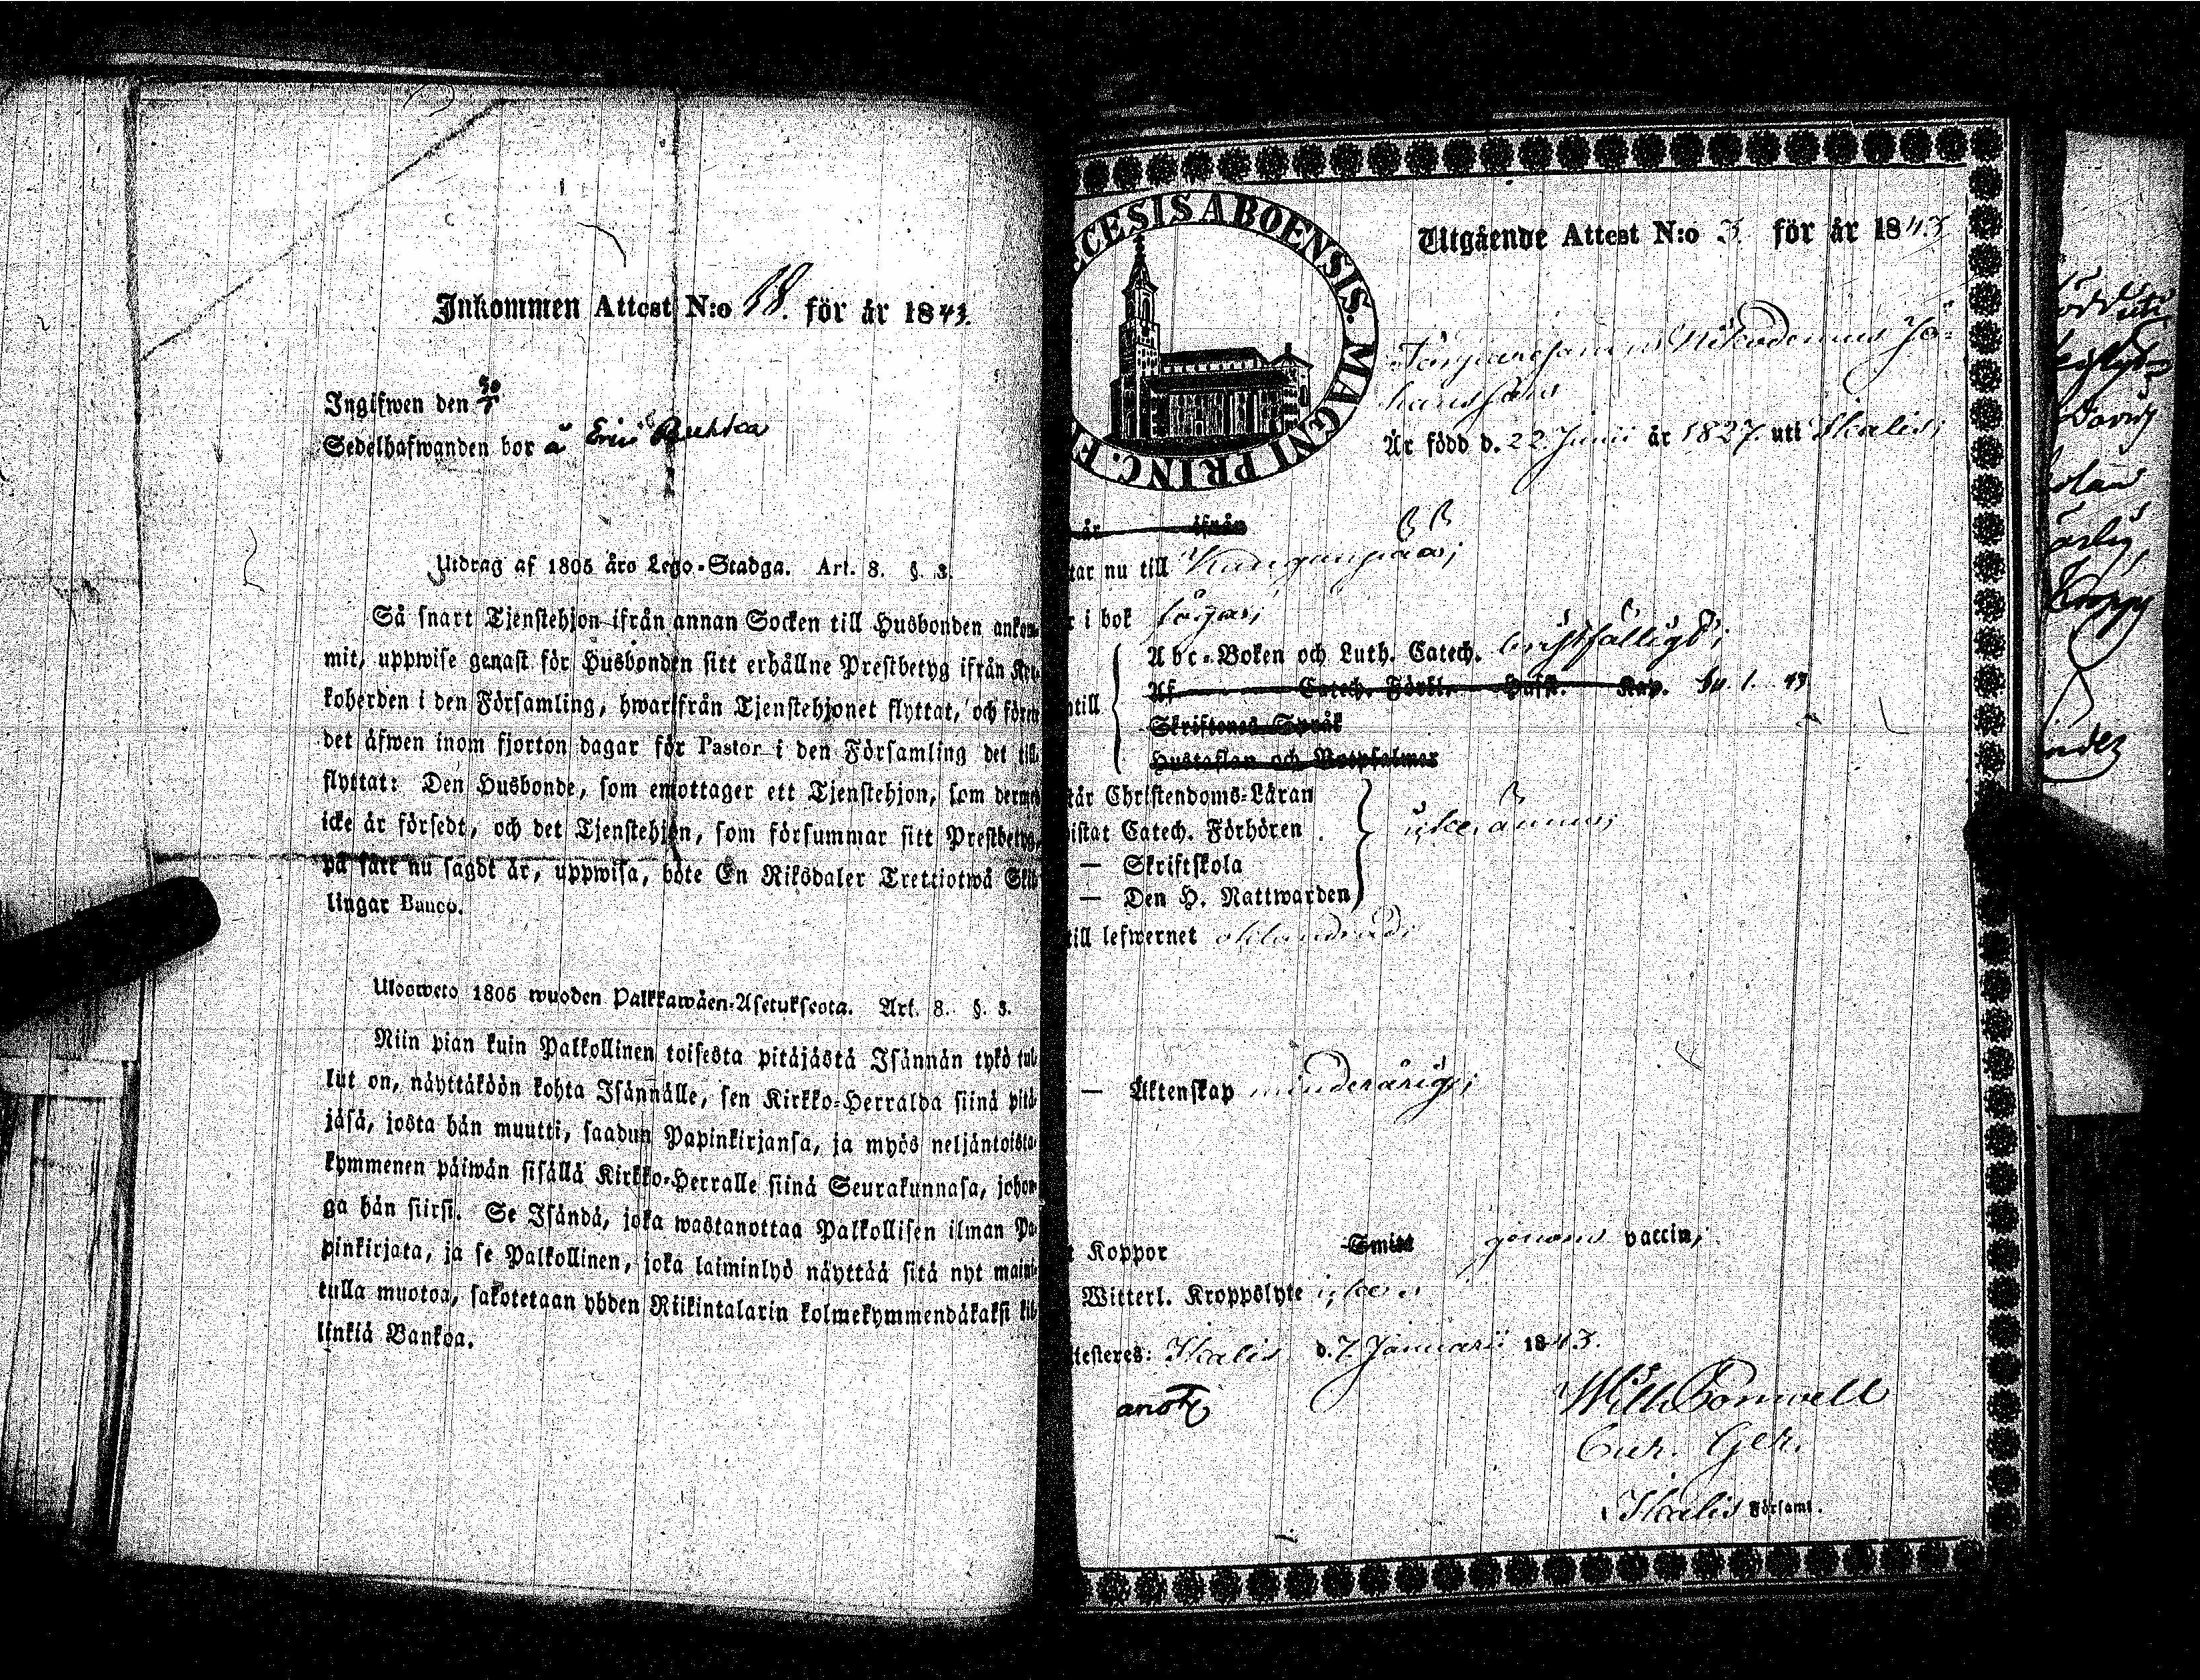 Inkommen Attest N:o 18. för år 1843.
Ingifwen den
Sedelhafwanden bor å
Utdrag af 1805 års Lego-Stadga. Art. 8. §. 3.
Så snart Tjenstehjon ifrån annan Socken till Husbonden ankom-
mit, uppwise genast för Husbonden sitt erhållne Prestbetyg ifrån Kyr-
koherden i den Församling, hwarifrån Tjenstehjonet flyttat, och förete
det äfwen inom fjorton dagar för Pastor i den Församling det till-
flyttat: Den Husbonde, som emottager ett Tjenstehjon, som dermed
icke är försedt, och det Tjenstehjon, som försummar sitt Prestbetyg,
på sätt nu sagdt är, uppwisa, böte En Riksdaler Trettiotwå Skil-
lingar Banco.
Ulosweto 1805 wuoden Palkkawäen-Asetuksesta. Art. 8. §. 3.
Niin pian kuin Palkollinen toisesta pitäjästä Isännän tykö tul-
lut on, näyttäköön kohta Isännälle, sen Kirkko-Herralda siinä pitä-
jäsä, josta hän muutti, saadun Papinkirjansa, ja myös neljäntoista-
kymmenen päiwän sisällä Kirkko-Herralle siinä Seurakunnasa, johon-
ga hän siirsi. Se Isändä, joka wastanottaa Palkollisen ilman Pa-
pinkirjata, ja se Palkollinen, joka laiminlyö näyttää sitä nyt maini-
tulla muotoa, sakotetaan yhden Riikintalarin kolmekymmendäkaksi kil-
linkiä Bankoa.
CESIS ABOENSIS. MAGNI PRINC. F
Utgående Attest N:o 3. för år 1843
Nikodemus Jo-
hansson
Är född d. 22 Junii år 1827. uti Ikalis;
år ifrån
tar nu till Kanganpää;
i bok
Abc-Boken och Luth. Catech.
Af Catech. Förkl. Hufst. Kap.
ntill
Skriftenes Språk
Hustaflan och Botpsalmer
tår Christendoms-Läran
istat Catech. Förhören icke ännu;
— Skriftskola
— Den H. Nattwarden
till lefwernet oklandrad;
— Äktenskap minderårig;
Koppor Smitt genom vaccin;
Witterl. Kroppslyte icke
testeres: Ikalis d. 7 Januarii 1843.
Cur. Ger.
Ikalis Församl.